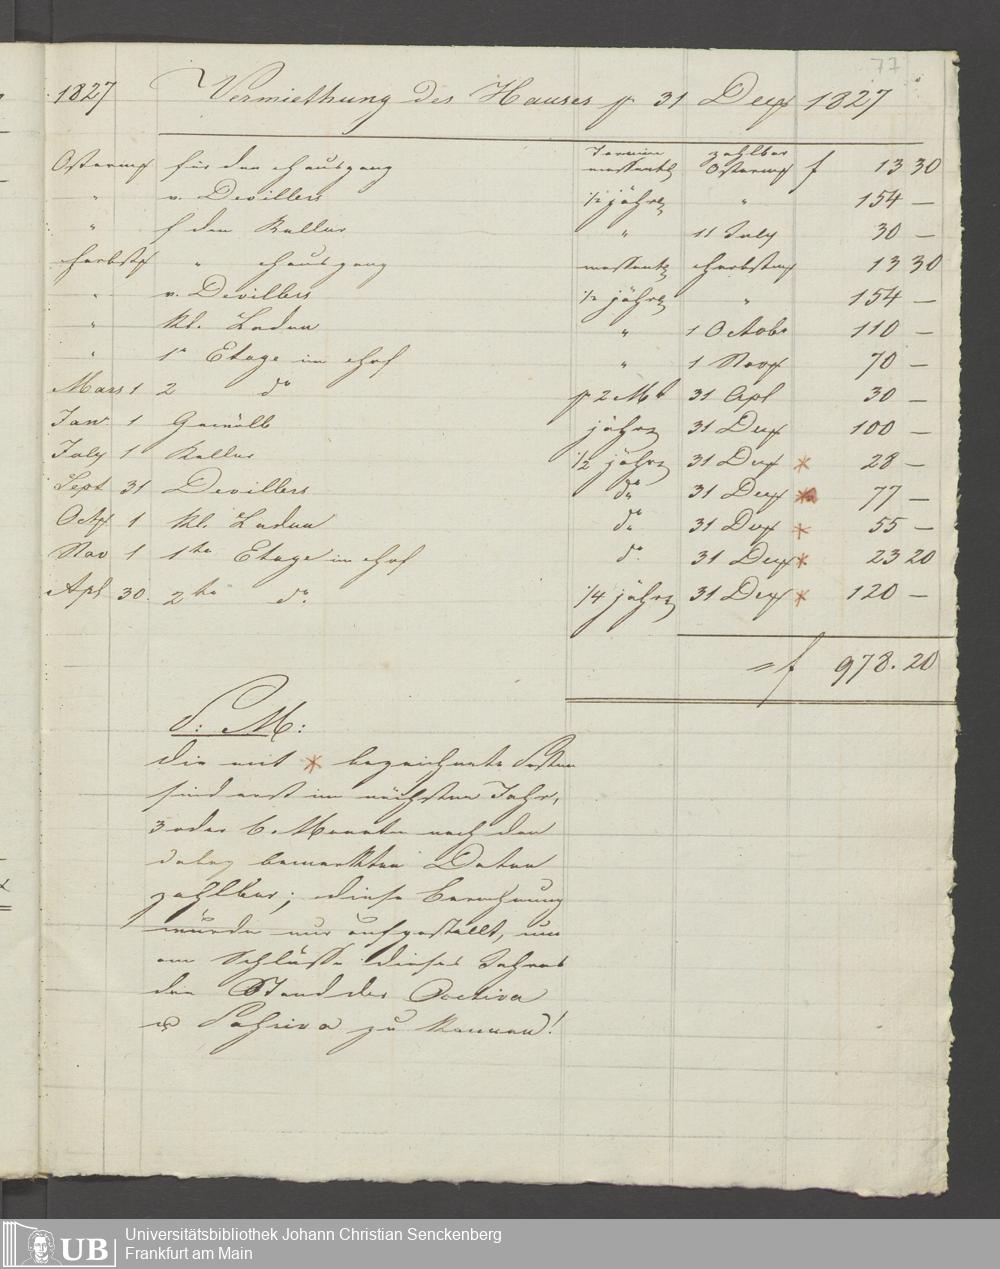 77
1827 Vermiethung des Hauses p 31 Decz 1827
Termin zahlbar
Ostermss für den Hausgang messentl Ostermss f 13 30
" v. Devillers 1/2 jährl " 154 —
" f den Keller " 11 July 30 —
Herbstm " Hausgang messentl Herbstmss 13 30
" v. Devillers 1/2 jährl " 154 —
" kl. Laden " 1 Octobr 110 —
" 1r Etage im Hof " 1 Novz 70 —
Mars 1 2 do p 2 Mt 31 Apl 30 —
Janr 1 Gewölb jährl 31 Decz 100 —
July 1 Keller 1/2 jährl 31 Decz * 28 —
Sept 31 Devillers do 31 Decz * 77 —
Octz 1 kl. Laden do 31 Decz * 55 —
Nov 1 1te Etage im Hof do 31 Decz * 23 20
Apl 30. 2te do. 1/4 jährl 31 Decz * 120 —
= f 978.20
P: M:
die mit * bezeichnete Posten
sind erst im nächsten Jahr,
3 oder 6 Monate nach den
dabey bemerkten Daten
zahlbar; diese Berechnung
wurde nur aufgestellt, um
am Schlusse dieses Jahres
den Stand der Activa
& Passiva zu kennen!
UB
Universitätsbibliothek Johann Christian Senckenberg
Frankfurt am Main